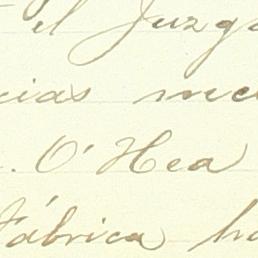 el Juzga
cias me
. O'Hea
Fábrica ha